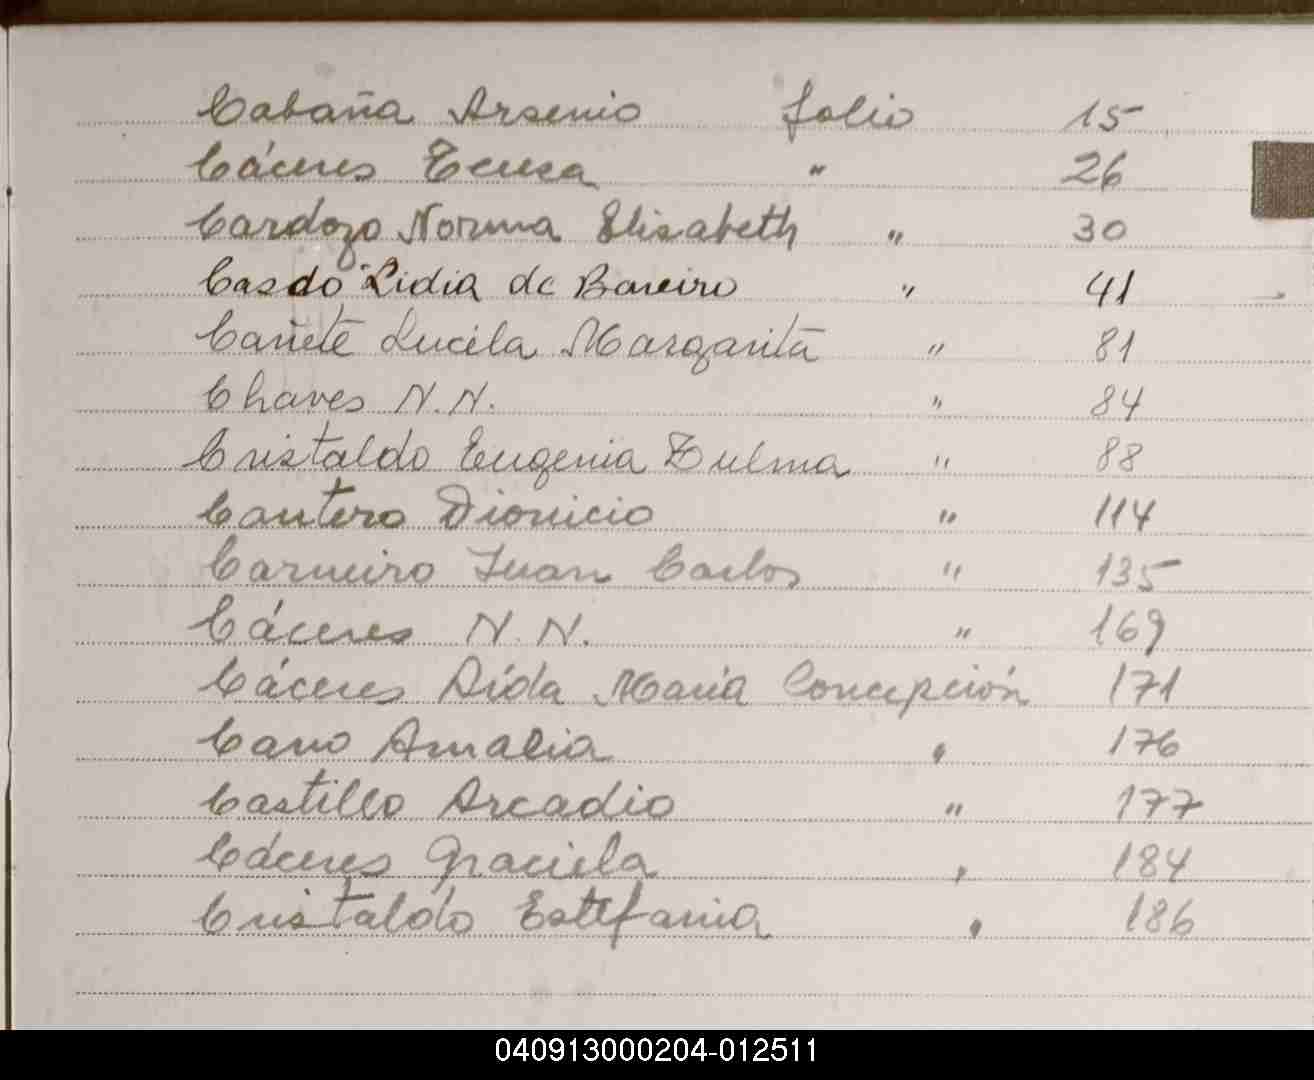 Cabaña Arsenio folio 15
Cáceres Teresa " 26
Cardozo Norma Elisabeth " 30
Casdo Lidia de Bareiro " 41
Cañete Lucila Margarita " 81
Chaves N.N. " 84
Cristaldo Eugenia Zulma " 88
Cantero Dionicio " 114
Carneiro Juan Carlos " 135
Cáceres N.N. " 169
Cáceres Aída María Concepción 171
Cano Amalia " 176
Castillo Arcadio " 177
Cáceres Graciela " 184
Cristaldo Estefania " 186
040913000204-012511